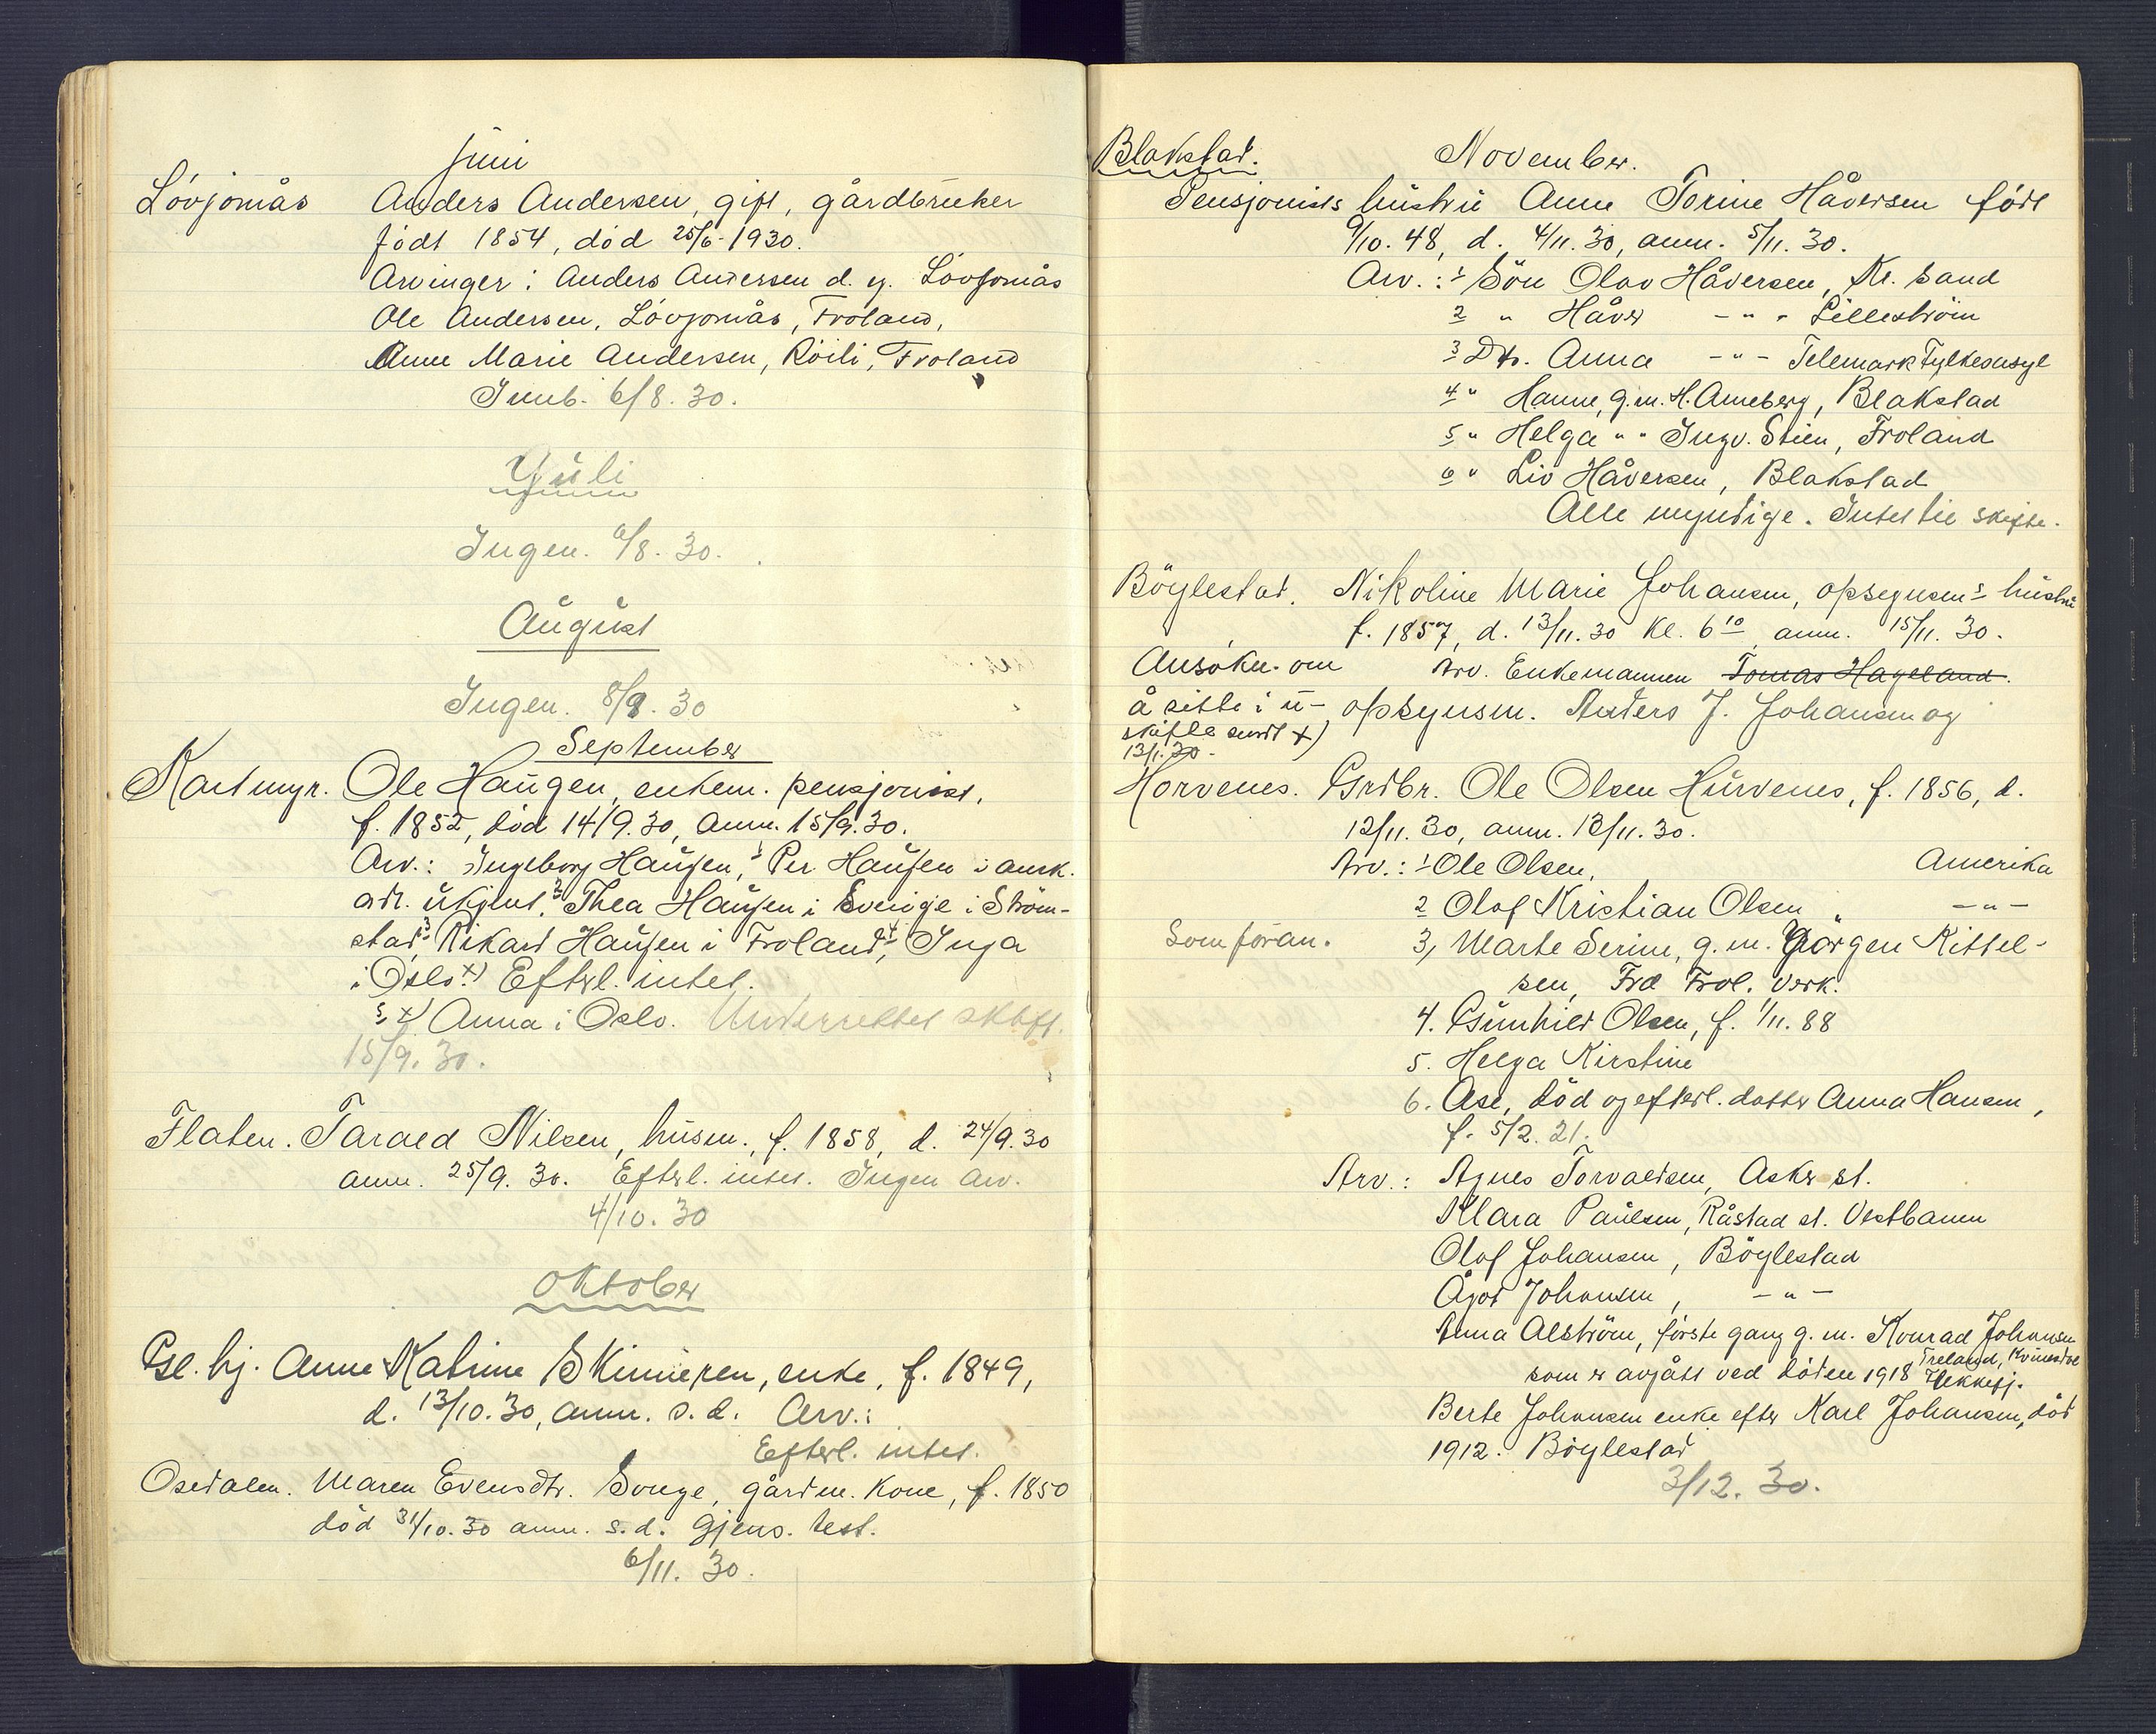 Juni
Lövjomås Anders Andersen, gift, gårdbruker
födt 1854, död 25/6-1930.
Arvinger: Anders Andersen d. y. Lövjomås
Ole Andersen, Lövjomås, Froland,
Anne Marie Andersen, Röili, Froland
Innb. 6/8. 30.
Juli
Ingen. 6/8. 30.
August
Ingen. 8/9. 30
September
Kartmyr. Ole Haugen, enkem. pensjonist,
f. 1852, död 14/9. 30, anm. 15/9. 30.
Arv.: Ingeborg Haugen, 1 Per Haugen i amrk.
adr. ukjent, 2 Thea Haugen i Sverige i Ström-
stad, 3 Rikard Haugen i Froland, 4 Inga
i Oslo. x) Efterl. intet.
5 x) Anna i Oslo. Underrettet skift.
15/9. 30.
Flaten. Tarald Nilsen, husm., f. 1858, d. 24/9. 30
anm. 25/9. 30. Efterl. intet. Ingen arv.
4/10. 30
Oktober
Gl. hj. Anne Katrine Skinnepen, enke, f. 1849,
d. 13/10. 30, anm. s. d. Arv.:
Efterl. intet.
Osedalen. Maren Evensdtr. Songe, gårdm. kone, f. 1850
död 31/10. 30 anm. s. d. Gjens. test.
6/11. 30.
Blakstad. November.
Pensjonists hustru Anne Torine Håversen födt
9/10. 48, d. 4/11. 30, anm. 5/11. 30.
Arv.: 1 Sön Olav Håversen, Kr. sand
2 " Håver - " - Lilleström
3 Dtr. Anna - " - Telemark Fylkesasyl
4 " Hanne, g. m. H. Anneberg, Blakstad
5 " Helga " " Ingv. Stien, Froland
6 " Liv Håversen, Blakstad
Alle myndige. Intet tie skifte.
Böylestad. Nikoline Marie Johansen, opsynsm.s hustru
f. 1857, d. 13/11. 30 Kl. 6 10 anm. 15/11. 30.
Ansökn. om Arv. Enkemannen Tomas Hageland.
å sitte i u- opsynsm. Anders J. Johansen og
skifte sendt x)
13/1. 30.
Horvenes. Grdbr. Ole Olsen Hurvenes, f. 1856, d.
12/11. 30, anm. 13/11. 30.
Arv.: 1 Ole Olsen, Amerika
2 Olaf Kristian Olsen " - " -
Som foran. 3, Marte Serine, g. m. Jörgen Kittel-
sen, Frd Frol. Verk.
4. Gunhild Olsen, f. 1/11. 88
5. Helga Kirstine
6. Åse, död og efterl. datter Anna Hansen,
f. 5/2. 21.
Arv.: Agnes Torvaldsen, Asker st.
Klara Paulsen, Råstad st. Vestbanen
Olaf Johansen, Böylestad
Ågot Johansen, - " -
Anna Alström, förste gang g. m. Konrad Johansen
som er avgått ved döden 1918 Treland, Kvinesdal
Flekkefj.
Berte Johansen enke efter Karl Johansen, död
1912. Böylestad
3/12. 30.